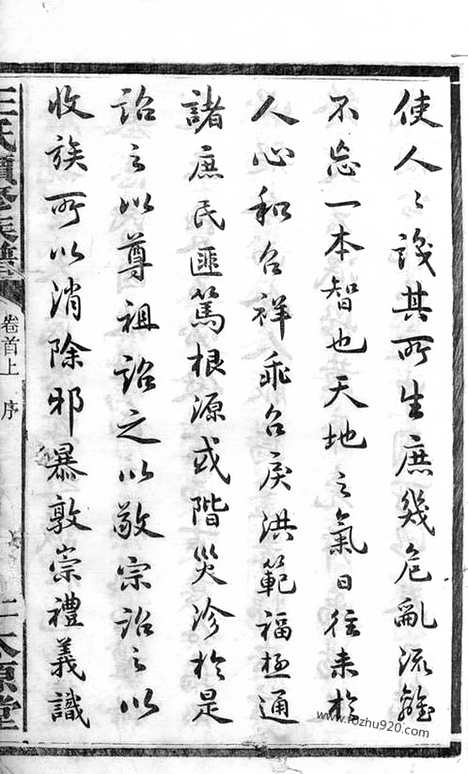 使人〻識其所生庶幾危亂流離
不忘一本智也天地之氣日往来於
人心和召祥乖召戾洪範福極通
諸庶民匪篤根源或階災沴於是
詔之以尊祖詔之以敬宗詔之以
收族所以消除邪暴敦崇禮義識
王氏續修族譜
卷首上
序
上
太原堂
www.fozhu920.com